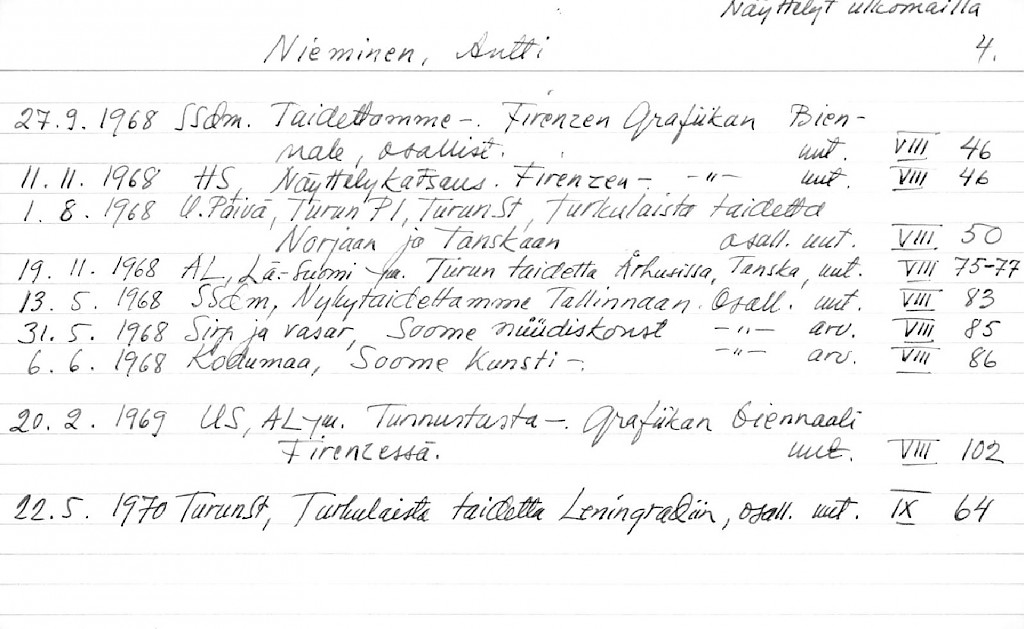 Näyttelyt ulkomailla
Nieminen, Antti 4.
27.9.1968 SSdm. Taidettamme-. Firenzen Grafiikan Bien-
nale, osallist. uut. VIII 46
11.11.1968 HS, Näyttelykatsaus. Firenzen- -"- uut. VIII 46
1.8.1968 U.Päivä, Turun PI, TurunSt, turkulaista taidetta
Norjaan ja Tanskaan osall. uut. VIII 50
19.11.1968 AL, Lä-Suomi ym. Turun taidetta Århusissa, Tanska, uut. VIII 75-77
13.5.1968 SSdm, Nykytaidettamme Tallinnaan. Osall. uut. VIII 83
31.5.1968 Sirp ja vasar, Soome nüüdiskunst -"- arv. VIII 85
6.6.1968 Kodumaa, Soome Kunsti-. -"- arv. VIII 86
20.2.1969 US, AL ym. Tunnustusta-. Grafiikan biennaali
Firenzessä. uut. VIII 102
22.5.1970 TurunSt, Turkulaista taidetta Leningradiin, osall. uut. IX 64